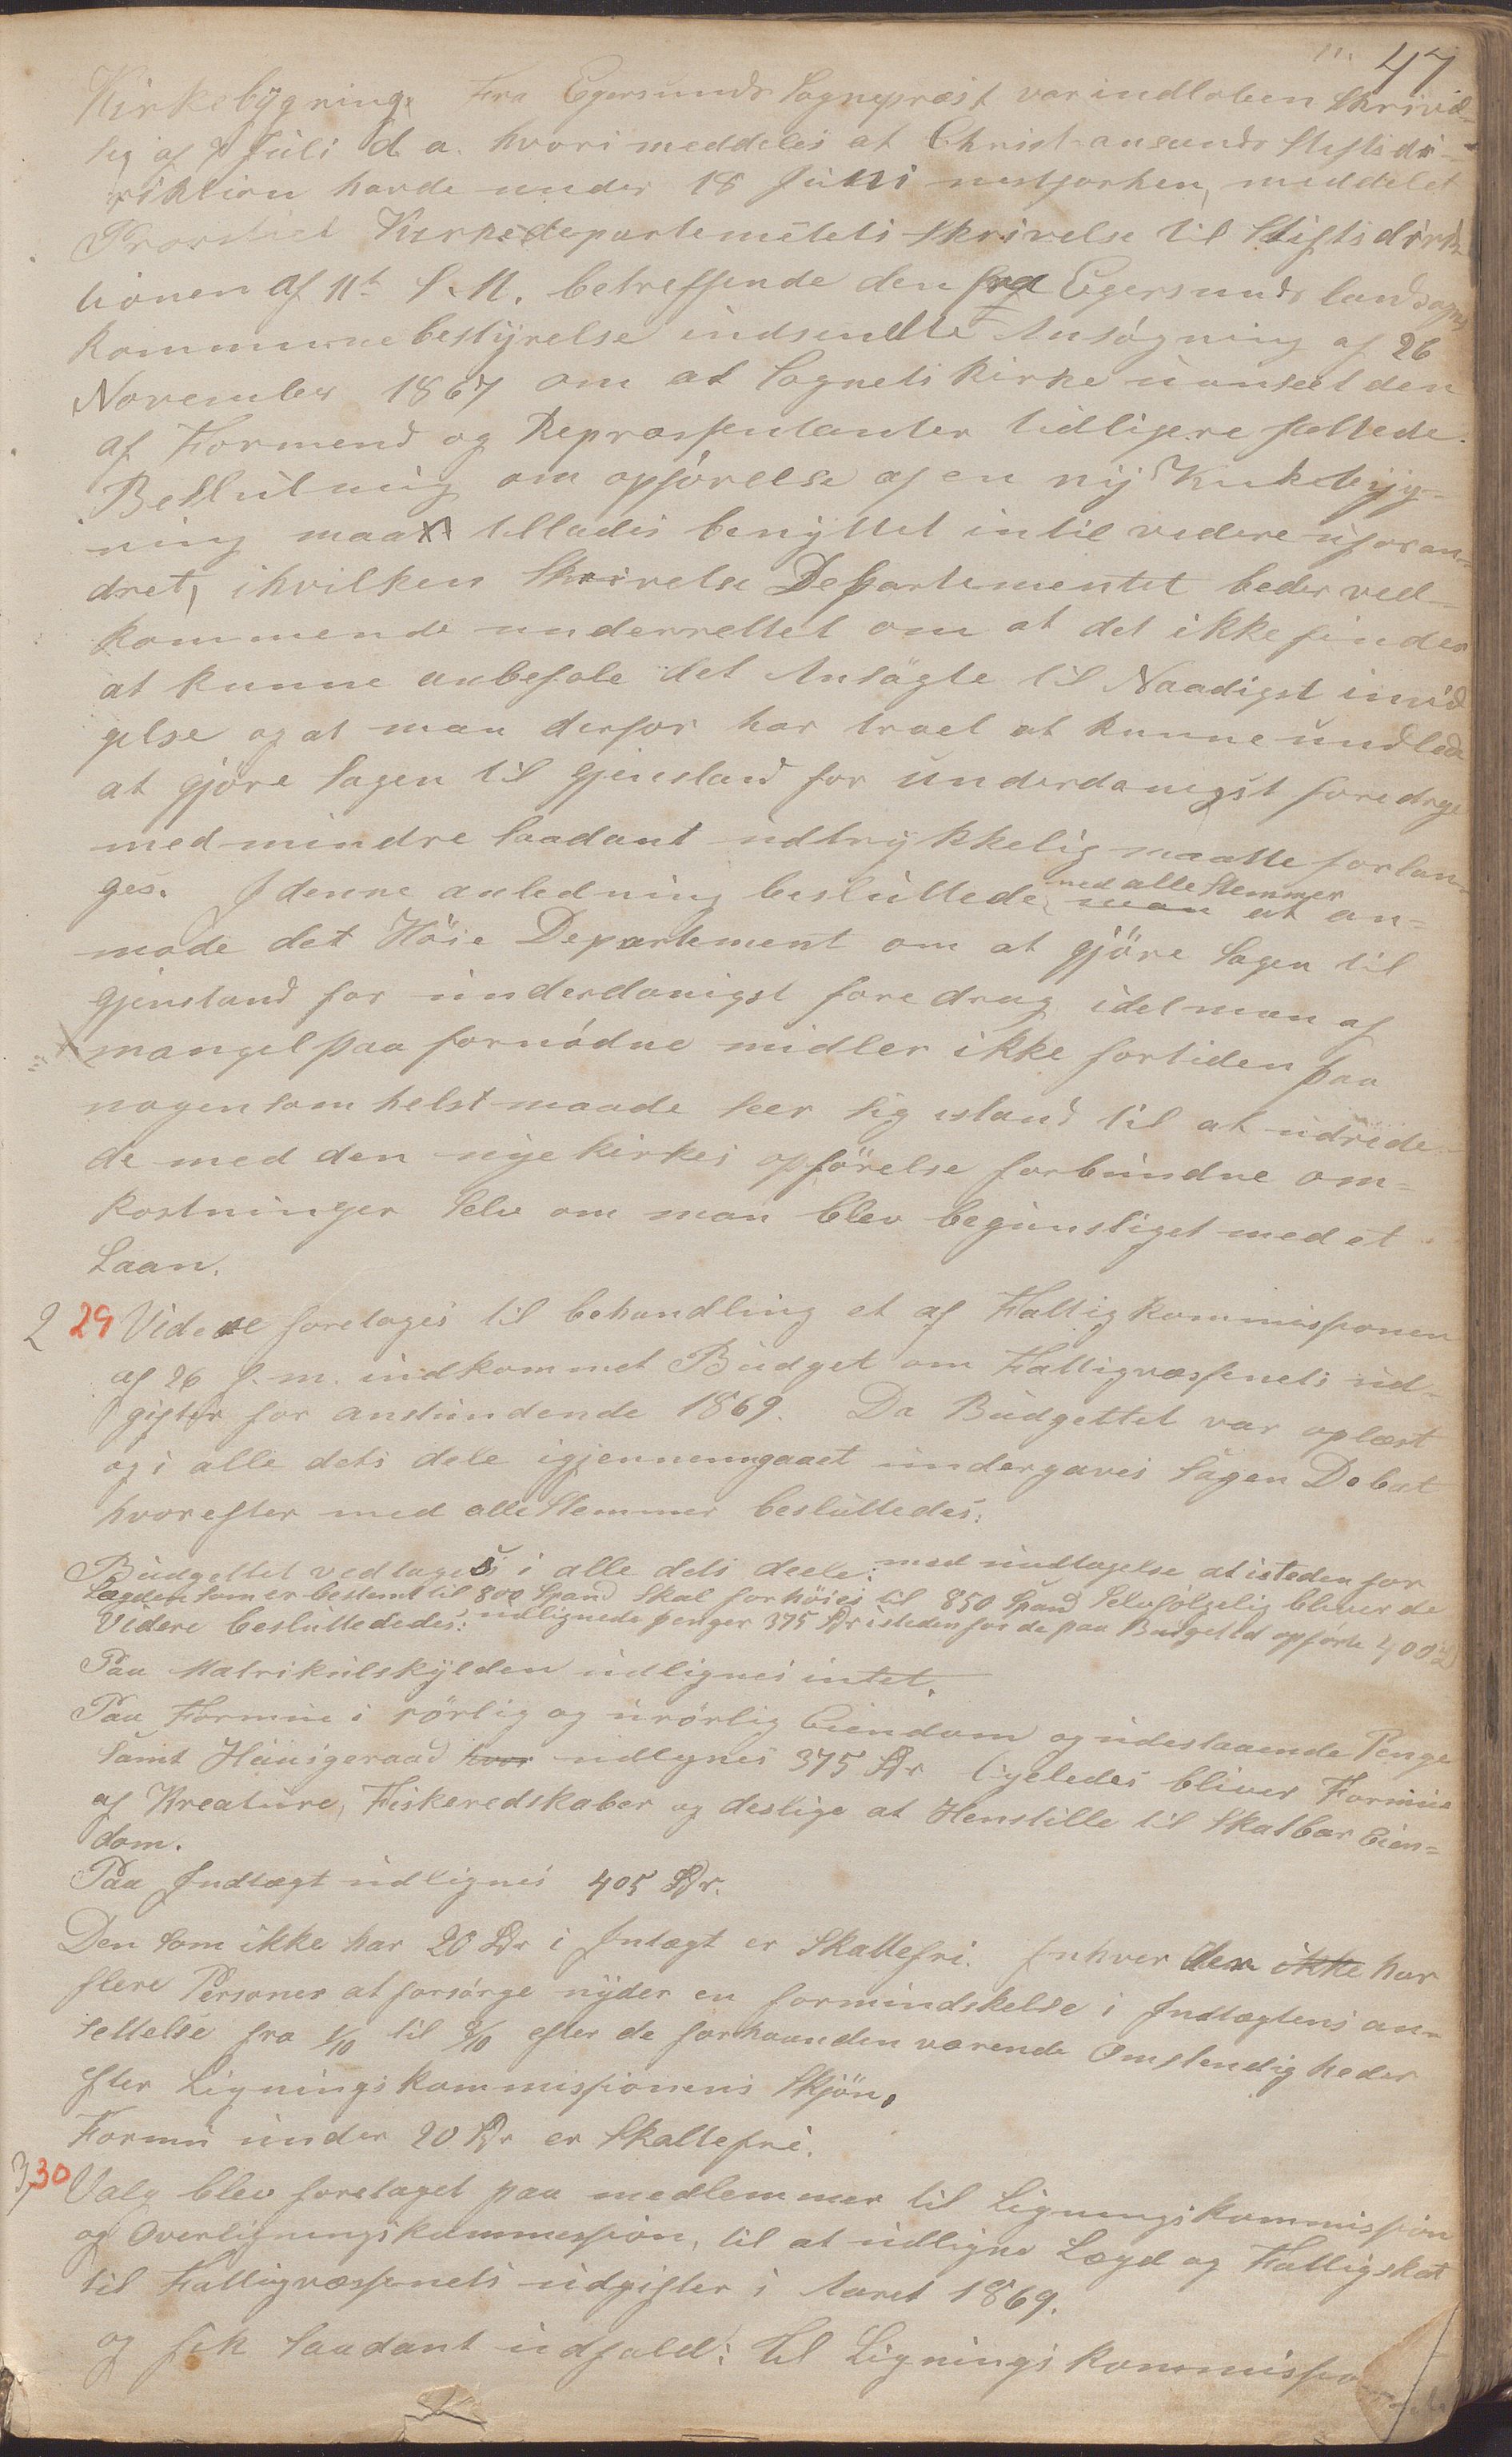 47
Kirkebygning. Fra Egersunds Sogneprest var indloben Skrivel-
lig af 7 Juli d. a. hvori meddeles at Christiansands Stiftsdi-
riktion havde under 18 Juni nestforhen, meddelet
Provstiet Kirkedepartemetets Skrivelse til Stiftsdirik
tionen af 11t S. M. betreffende den fra Egersunds landsogns
Kommunebestyrelse indsendte Ansøgning af 26
November 1867 om at Sognets kirke uanseet den
af Formend og Repræssentanter tidligere fattede
Beslutning om opførelse af en ny Kirkebyg-
ning maa tillades benyttet intil videre uforan-
dret, ihvilken Skrivelse Departementet beder ved-
kommende underrettet om at det ikke findes
at kunne anbefale det Ansøgte til Naadigst imød
gelse og at man derfor har troet at kunne undlade
at gjøre Sagen til gjenstand for underdanigst foredrag
med mindre Saadant udtrykkelig maatte forlan-
ges. I denne anledning besluttede med alle Stemmer man at an-
mode det Høie Departement om at gjøre Sagen til
gjenstand for underdanigst foredrag idet man af
mangel paa fornødne midler ikke fortiden paa
nogensomhelst maade seer sig istand til at udrede
de med den nye kirkes opførelse forbundne om-
kostninger Selv om man blev begunstiget med et
Laan.
2 29 Videre foretoges til behandling et af Fattigkommissionen
af 26 f. m. indkommet Budget om Fattigvæssenets ud-
gifter for anstundende 1869. Da Budgettet var oplæst
og i alle dets dele igjennemgaaet undergaves Sagen Debat
hvorefter med alle Stemmer besluttedes:
Budgettet vedtages i alle dets deele: med undtagelse at isteden for
Lægden som er bestemt til 800 Spand Skal forhøies til 850 Spand Selvfølgelig bliver de
Videre besluttededes: udlignede penger 375 Spdr istedenfor de paa Budgettet opførte 400
Paa Matrikulskylden udlignes intet.
Paa Formue i rørlig og urørlig Eiendom og udestaaende Penge
samt Huusgeraad hvor udlignes 375 Spdr ligeledes bliver Formue
af Kreature, Fiskeredskaber og deslige at Henstille til Skatbar Eien-
dom.
Paa Indtægt udlignes 405 Spdr.
Den som ikke har 20 Spdr i Intægt er Skattefri. Enhver der ikke har
flere Personer at forsørge nyder en formindskelse i Indtægtens an-
settelse fra 1/10 til 9/10 efter de forhaanden værende Omstendigheder
efter Ligningskommissionens Skjøn.
Formu under 20 Spdr er Skattefri.
3 30 Valg blev foretaget paa medlemmer til Ligningskommission
og Overligningskommession, til at udligne Lægd og Fattigskat
til Fattigvæssenets udgifter i Aaret 1869.
og fik Saadant udfald: til Ligningskommissio